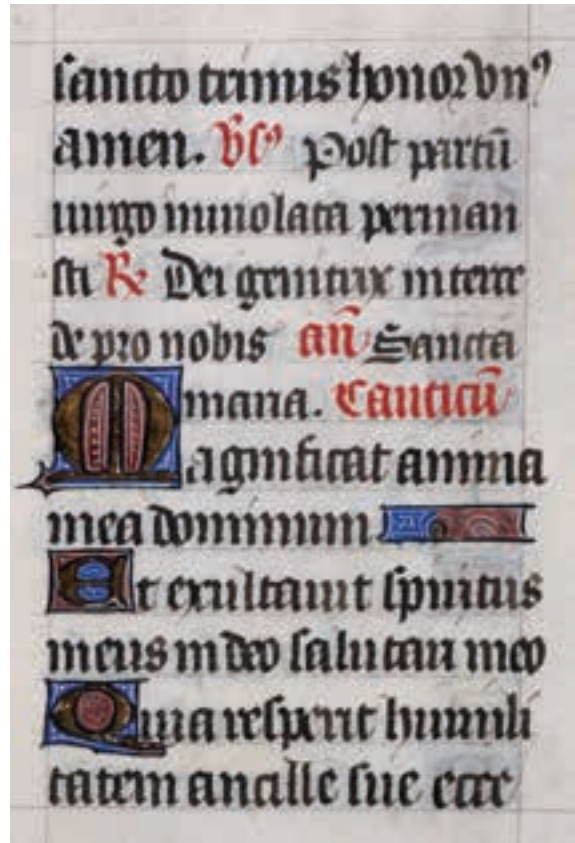 sancto trinus honor vnꝰ
amen. v̄sꝰ Post partū
uirgo inuiolata perman
sti ℟ Dei genitrix interce
de pro nobis an̄ Sancta
maria. Canticū
Magnificat anima
mea dominum
Et exultauit spiritus
meus in deo salutari meo
Quia respexit humili
tatem ancille sue ecce